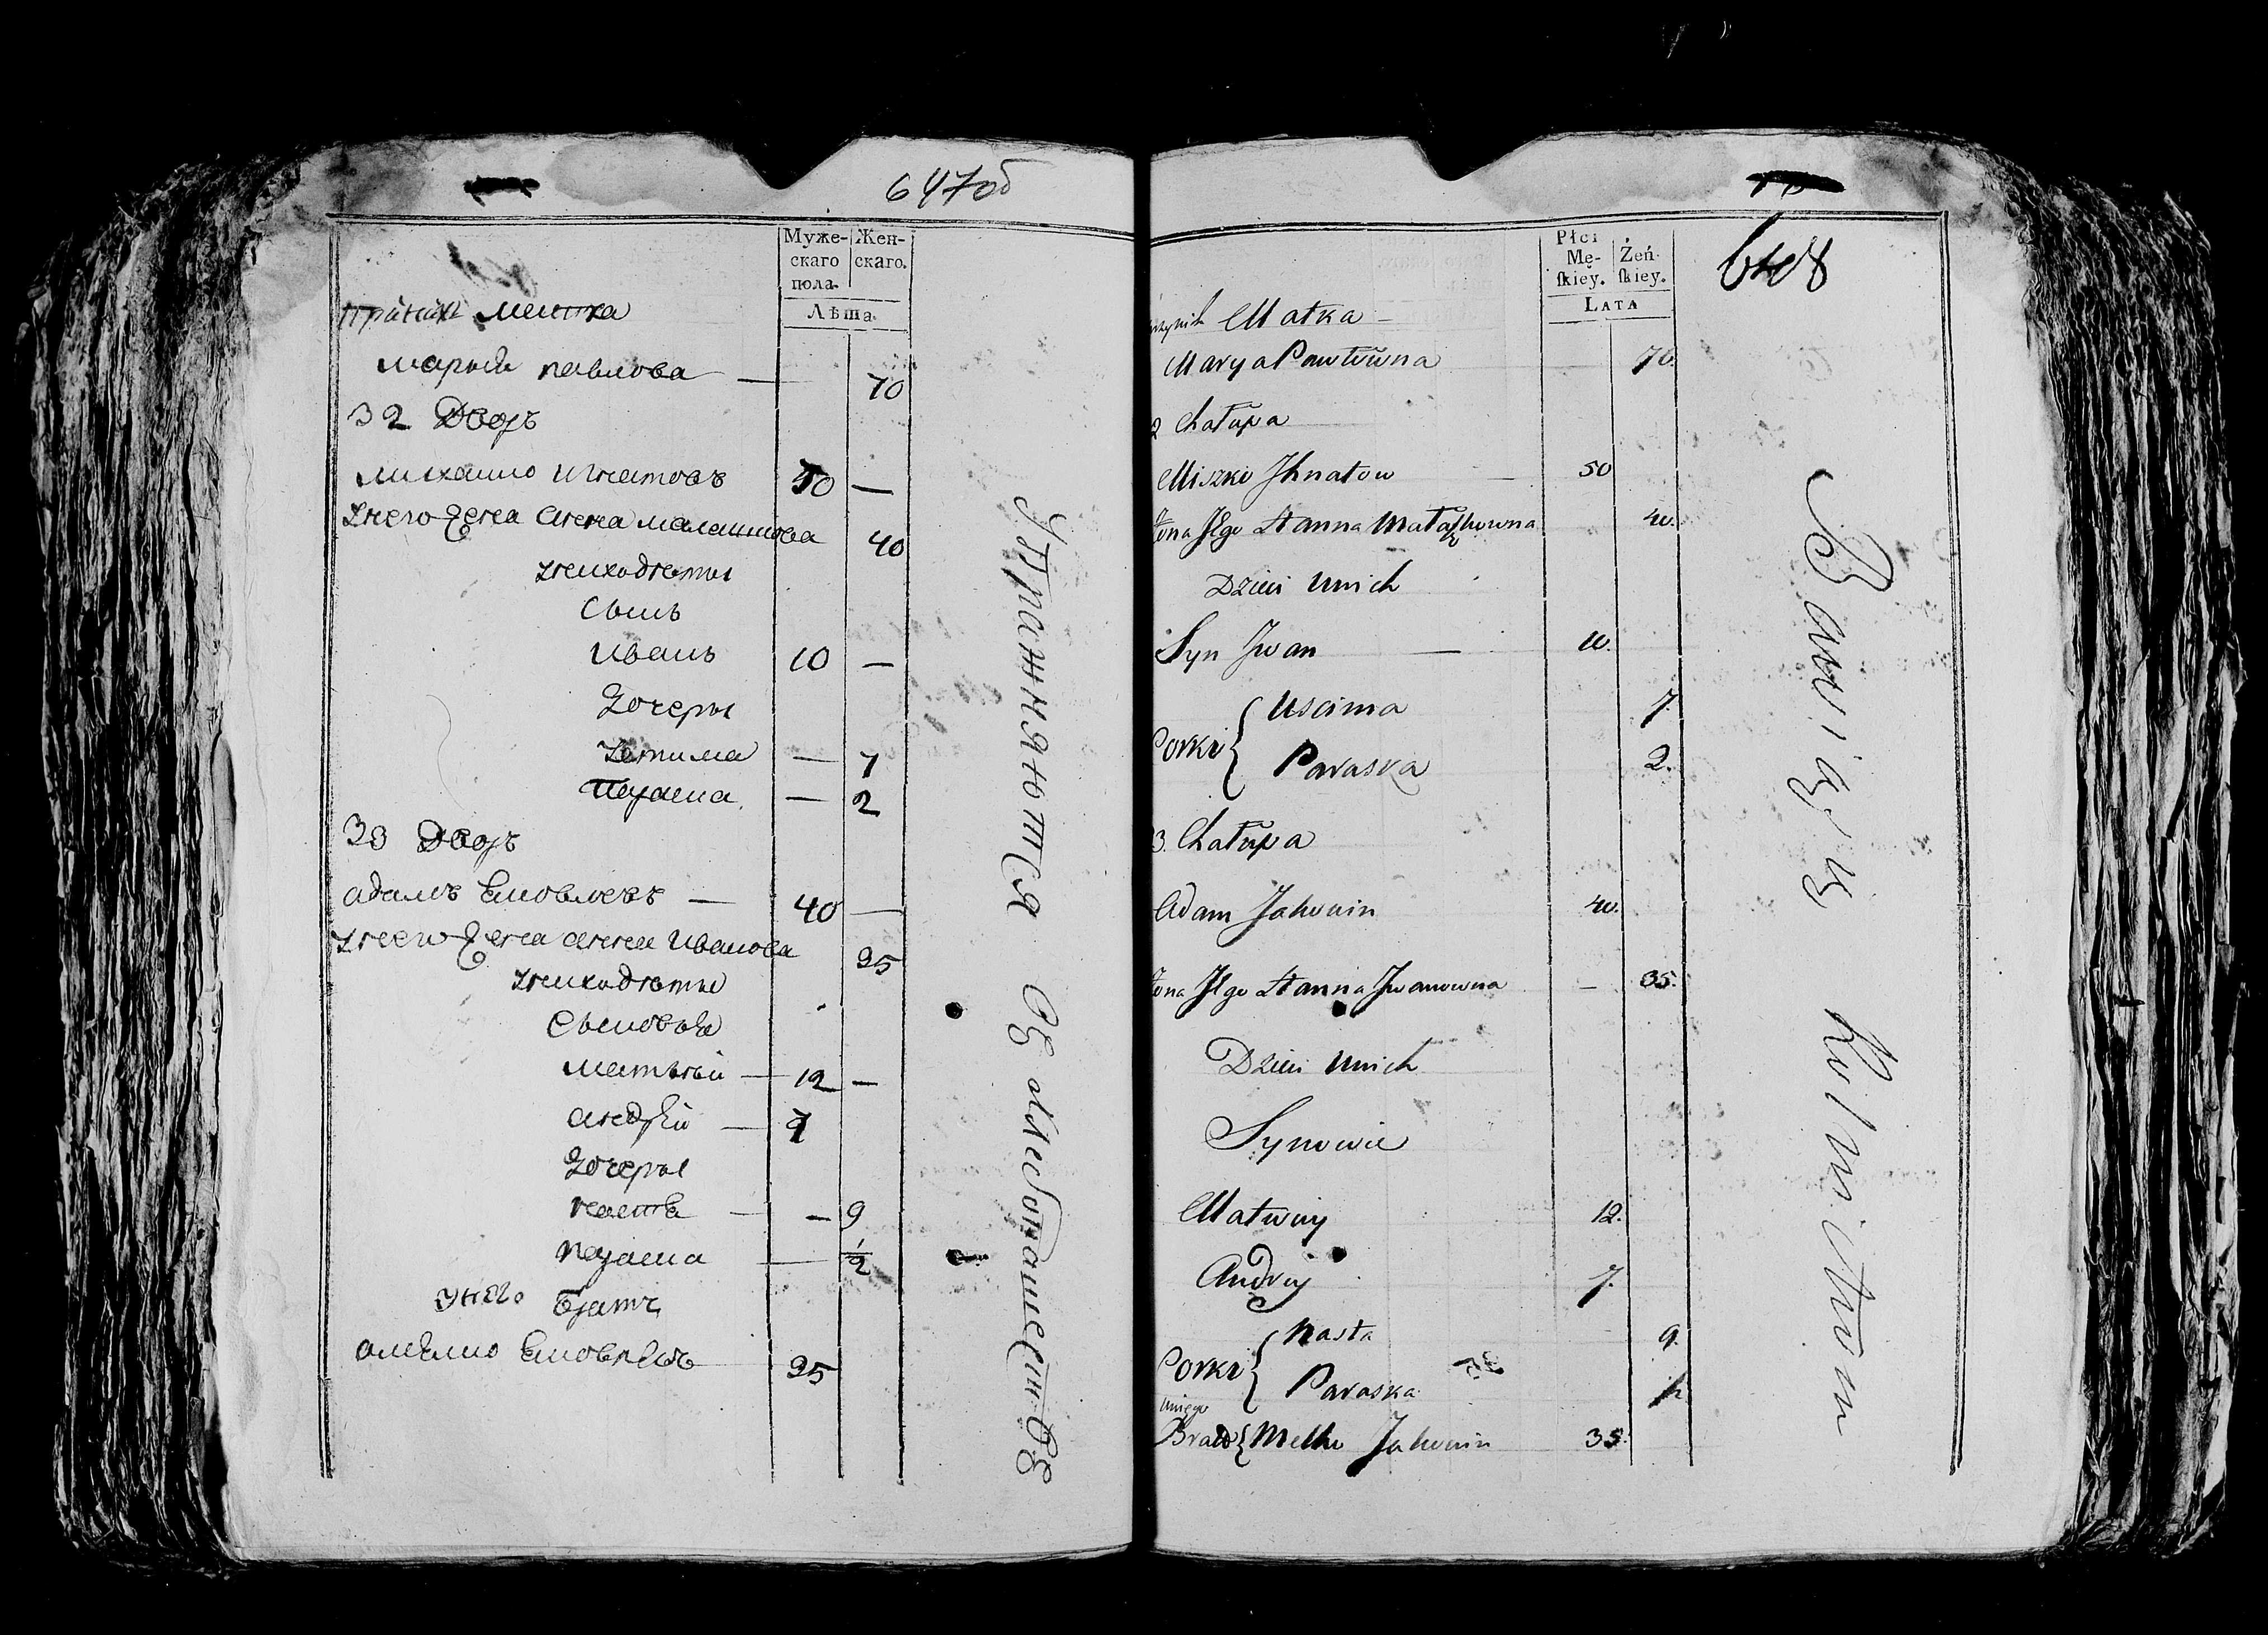 647об
Муже-скаго пола.
Жен-скаго.
Лѣта.
Марья павлова — 70
32 Дворъ
михаило игнатовъ 50 —
унего жена анна малашкова 40
унихъ дѣты
Сынъ
Иванъ 10 —
Дочеры
устима — 7
Параска — 2
33 Дворъ
адамъ Яковлевъ — 40 —
унего жена анна Иванова 35
унихъ дѣты
Сыновья
матвѣй — 12 —
андрей — 7
Дочеры
настя — — 9
параска — 1/2
унего братъ
Яковлевъ 35
Упражняются Хлебопашествомъ
648
Płci Mę-skiey.
Żeń-skiey.
LATA
Matka —
Marya Pawłowna 70.
2 Chałupa
Miszko Jhnatow — 50
Żona Jego Hanna Małaszkowna 40.
Dzieci unich
Syn Jwan — 10.
Corki { Uscima 7.
Paraska 2.
3. Chałupa
Adam Jakowin 40.
Żona Jego Hanna Jwanowna — 35.
Dzieci unich
Synowie
Matwiy 12.
Andriy 7.
Corki { Nasta 9.
Paraska 1/2
uniego
Brat { Melko Jakowin 35.
Bawią się Rolnictwem